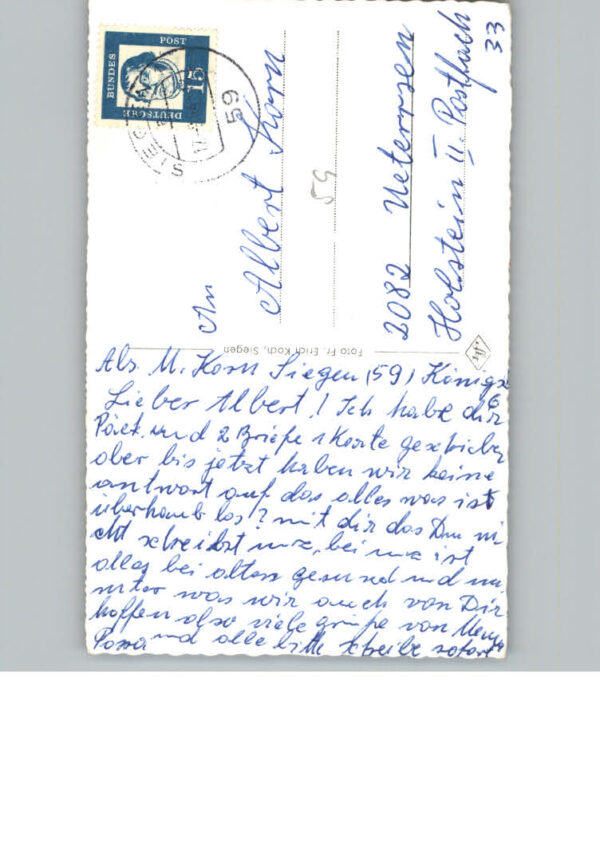 DEUTSCHE
BUNDES
POST
15
SIEGEN
59
An
Albert Korn
59
2082 Uetersen
Holstein II. Postfach
33
Foto Fr. Erich Koch, Siegen
Abs. M. Korn Siegen (59) Königs
Lieber Albert! Ich habe dir
Päck. und 2 Briefe 1 Karte geschrieben
aber bis jetzt haben wir keine
antwort auf das alles was ist
überhaub los? mit dir das Du ni
cht schreibst uns, bei uns ist
alles bei alten gesund und mu
nter was wir auch von Dir
hoffen also viele grüße von
und alle bitte schreibe sofort